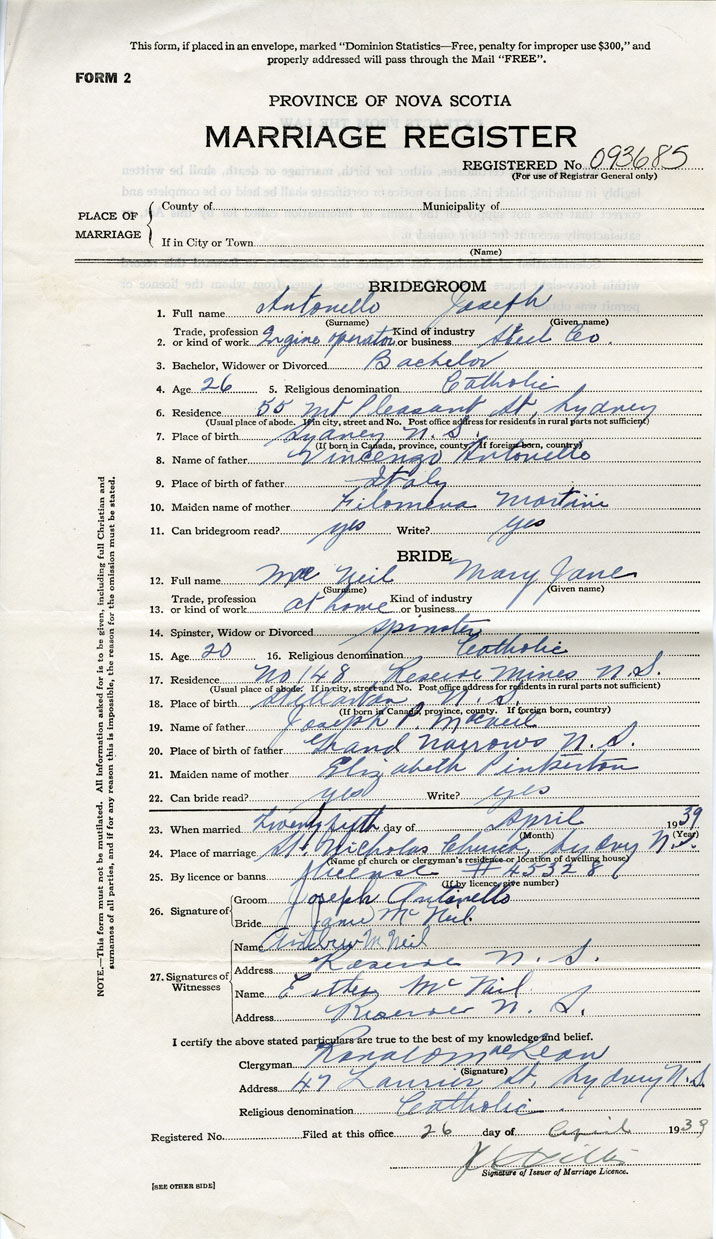 This form, if placed in an envelope, marked "Dominion Statistics—Free, penalty for improper use $300," and
properly addressed will pass through the Mail "FREE".
FORM 2
PROVINCE OF NOVA SCOTIA
MARRIAGE REGISTER
REGISTERED No. 093685
(For use of Registrar General only)
PLACE OF MARRIAGE
County of Municipality of
If in City or Town
(Name)
BRIDEGROOM
1. Full name Antonello Joseph
(Surname) (Given name)
2. Trade, profession or kind of work Engine operator Kind of industry or business Steel Co.
3. Bachelor, Widower or Divorced Bachelor
4. Age 26 5. Religious denomination Catholic
6. Residence 55 Mt Pleasant St, Sydney
(Usual place of abode. If in city, street and No. Post office address for residents in rural parts not sufficient)
7. Place of birth Sydney N.S.
(If born in Canada, province, county. If foreign born, country)
8. Name of father Vincenzo Antonello
9. Place of birth of father Italy
10. Maiden name of mother Filomena Martini
11. Can bridegroom read? yes Write? yes
BRIDE
12. Full name Mac Neil Mary Jane
(Surname) (Given name)
13. Trade, profession or kind of work at home Kind of industry or business
14. Spinster, Widow or Divorced spinster
15. Age 20 16. Religious denomination Catholic
17. Residence No 148 Reserve Mines N.S.
(Usual place of abode. If in city, street and No. Post office address for residents in rural parts not sufficient)
18. Place of birth Stellarton, N.S.
(If born in Canada, province, county. If foreign born, country)
19. Name of father Joseph P. McNeil
20. Place of birth of father Grand Narrows N.S.
21. Maiden name of mother Elizabeth Pinkerton
22. Can bride read? yes Write? yes
23. When married twenty fifth day of April 1939
(Month) (Year)
24. Place of marriage St. Nicholas Church, Sydney N.S.
(Name of church or clergyman's residence or location of dwelling house)
25. By licence or banns license # 45328
(If by licence, give number)
26. Signature of
Groom Joseph Antonello
Bride Jane McNeil
27. Signatures of Witnesses
Name Andrew McNeil
Address Reserve N. S.
Name Esther McNeil
Address Reserve N. S.
I certify the above stated particulars are true to the best of my knowledge and belief.
Clergyman Ronald MacLean
(Signature)
Address 47 Laurier St, Sydney N.S.
Religious denomination Catholic
Registered No. Filed at this office 26 day of April 1939
Signature of Issuer of Marriage Licence.
[SEE OTHER SIDE]
NOTE.—This form must not be mutilated. All information asked for is to be given, including full Christian and
surnames of all parties, and if for any reason this is impossible, the reason for the omission must be stated.